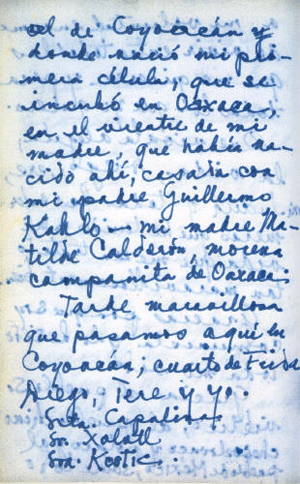 al de Coyoacán y
donde nació mi pri-
mera célula, que se
incubó en Oaxaca,
en el vientre de mi
madre, que había na-
cido ahí, casada con
mi padre, Guillermo
Kahlo – mi madre Ma-
tilde Calderón, morena
campanita de Oaxaca.
Tarde maravillosa
que pasamos aquí en
Coyoacán; cuarto de Frida
Diego, Tere y yo.
Srta. Capulina
Sr. Xolotl
Sra. Kostic.